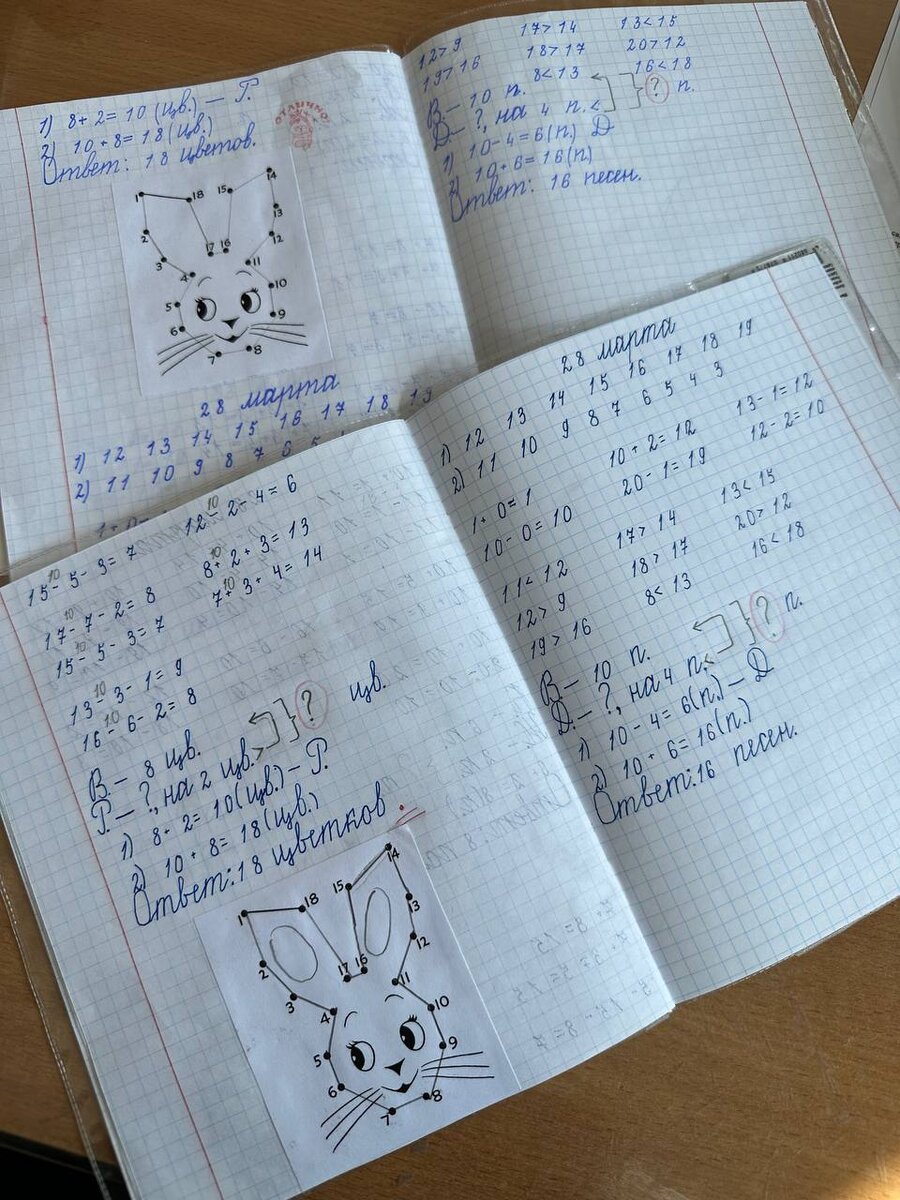 1) 8+2=10 (цв.) — Р.
2) 10+8=18 (цв.)
Ответ: 18 цветов.
ОТЛИЧНО!
1 18 15 14
2 17 16 13
3 4 11 12
5 10
6 9
7 8
28 марта
1) 12 13 14 15 16 17 18 19
2) 11 10 9 8 7 6 5
1+0=
12>9 17>14 13<15
19>16 18>17 20>12
8<13 16<18
В – 10 п.
Д – ?, на 4 п.< ? п.
1) 10-4=6(п.) Д
2) 10+6=16(п)
Ответ: 16 песен.
15-5-3=7 12-2-4=6
10 10
17-7-2=8 8+2+3=13
10 10
15-5-3=7 7+3+4=14
10 10
13-3-1=9
10
16-6-2=8
10
В – 8 цв.
Р – ?, на 2 цв.> ? цв.
1) 8+2=10(цв.) – Р.
2) 10+8=18(цв.)
Ответ: 18 цветков.
1 18 15 14
2 17 16 13
3 4 11 12
5 10
6 9
7 8
28 марта
1) 12 13 14 15 16 17 18 19
2) 11 10 9 8 7 6 5 4 3
1+0=1 10+2=12 13-1=12
10-0=10 20-1=19 12-2=10
11<12 17>14 13<15
12>9 18>17 20>12
19>16 8<13 16<18
В – 10 п.
Д – ?, на 4 п.< ? п.
1) 10-4=6(п.) – Д
2) 10+6=16(п.)
Ответ: 16 песен.